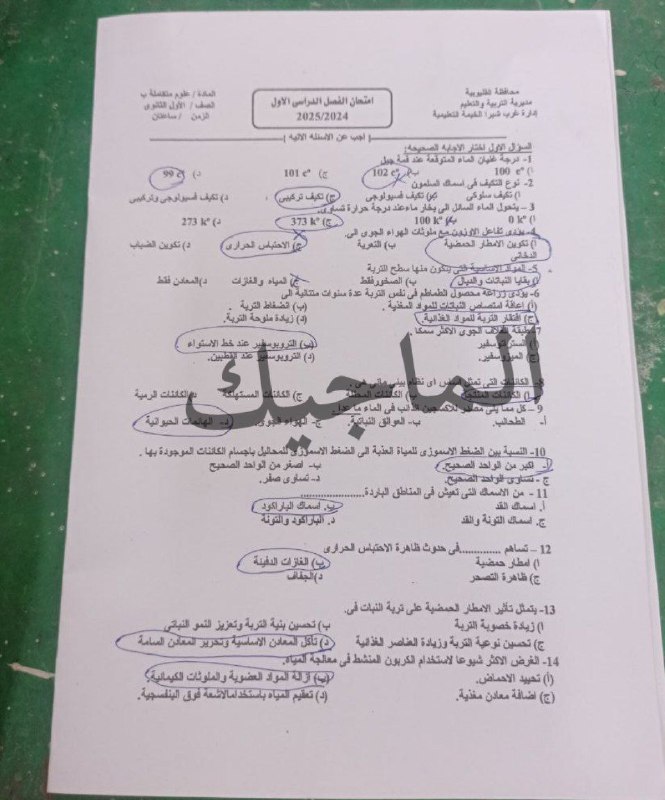 محافظة القليوبية
مديرية التربية والتعليم
إدارة غرب شبرا الخيمة التعليمية
امتحان الفصل الدراسى الأول
2025/2024
المادة / علوم متكاملة ب
الصف / الأول الثانوى
الزمن / ساعتان
اجب عن الاسئله الاتيه
السؤال الاول اختار الاجابه الصحيحه:
1- درجة غليان الماء المتوقعة عند قمة جبل
ا) 100 c° ب) 102 c° ج) 101 c° د) 99 c°
2- نوع التكيف فى اسماك السلمون
ا) تكيف سلوكى ب) تكيف فسيولوجى ج) تكيف تركيبى د) تكيف فسيولوجى وتركيبى
3 – يتحول الماء السائل الى بخار ماء عند درجة حرارة تساوى
ا) 0 k° ب) 100 k° ج) 373 k° د) 273 k°
4- يؤدى تفاعل الاوزون مع ملوثات الهواء الجوى الى.
ا) تكوين الامطار الحمضية ب) التعرية ج) الاحتباس الحرارى د) تكوين الضباب
الدخانى
5- المواد الاساسية التى يتكون منها سطح التربة
ا) بقايا النباتات والدبال ب) الصخور فقط ج) المياه والغازات د) المعادن فقط
6- يؤدى زراعة محصول الطماطم فى نفس التربة عدة سنوات متتالية الى
ا) اعاقة امتصاص النباتات للمواد المغذية. ب) انضغاط التربة.
ج) افتقار التربة للمواد الغذائية. د) زيادة ملوحة التربة.
7- طبقة الغلاف الجوى الاكثر سمكا.
ا) الستراتوسفير ب) التروبوسفير عند خط الاستواء
ج) الميزوسفير. د) التروبوسفير عند القطبين.
8- الكائنات التى تمثل اساس اى نظام بيئى مائى هى.
ا) الكائنات المنتجة ب) الكائنات المحللة ج) الكائنات المستهلكة د) الكائنات الرمية
9 – كل مما يلى مصادر للاكسجين الذائب فى الماء ما عدا.
أ- الطحالب. ب) العوالق النباتية. ج) الهواء الجوى. د- الهائمات الحيوانية
الماجيك
10- النسبة بين الضغط الاسموزى للمياة العذبة الى الضغط الاسموزى للمحاليل باجسام الكائنات الموجودة بها.
أ- اكبر من الواحد الصحيح. ب- أصغر من الواحد الصحيح
ج- تساوى الواحد الصحيح. د- تساوى صفر.
11 - من الاسماك التى تعيش فى المناطق الباردة.................
أ. اسماك القد ب. اسماك الباراكود
ج. اسماك التونة والقد د. الباراكود والتونة
12 – تساهم .............فى حدوث ظاهرة الاحتباس الحرارى
ا) امطار حمضية ب) الغازات الدفيئة
ج) ظاهرة التصحر د) الجفاف
13- يتمثل تأثير الامطار الحمضية على تربة النبات فى.
ا) زيادة خصوبة التربة ب) تحسين بنية التربة وتعزيز النمو النباتى
ج) تحسين نوعية التربة وزيادة العناصر الغذائية د) تآكل المعادن الاساسية وتحرير المعادن السامة
14- الغرض الاكثر شيوعا لاستخدام الكربون المنشط فى معالجة المياه.
(أ) تحييد الاحماض. (ب) ازالة المواد العضوية والملوثات الكيمائية.
(ج) اضافة معادن مغذية. (د) تعقيم المياه باستخدام الاشعة فوق البنفسجية.